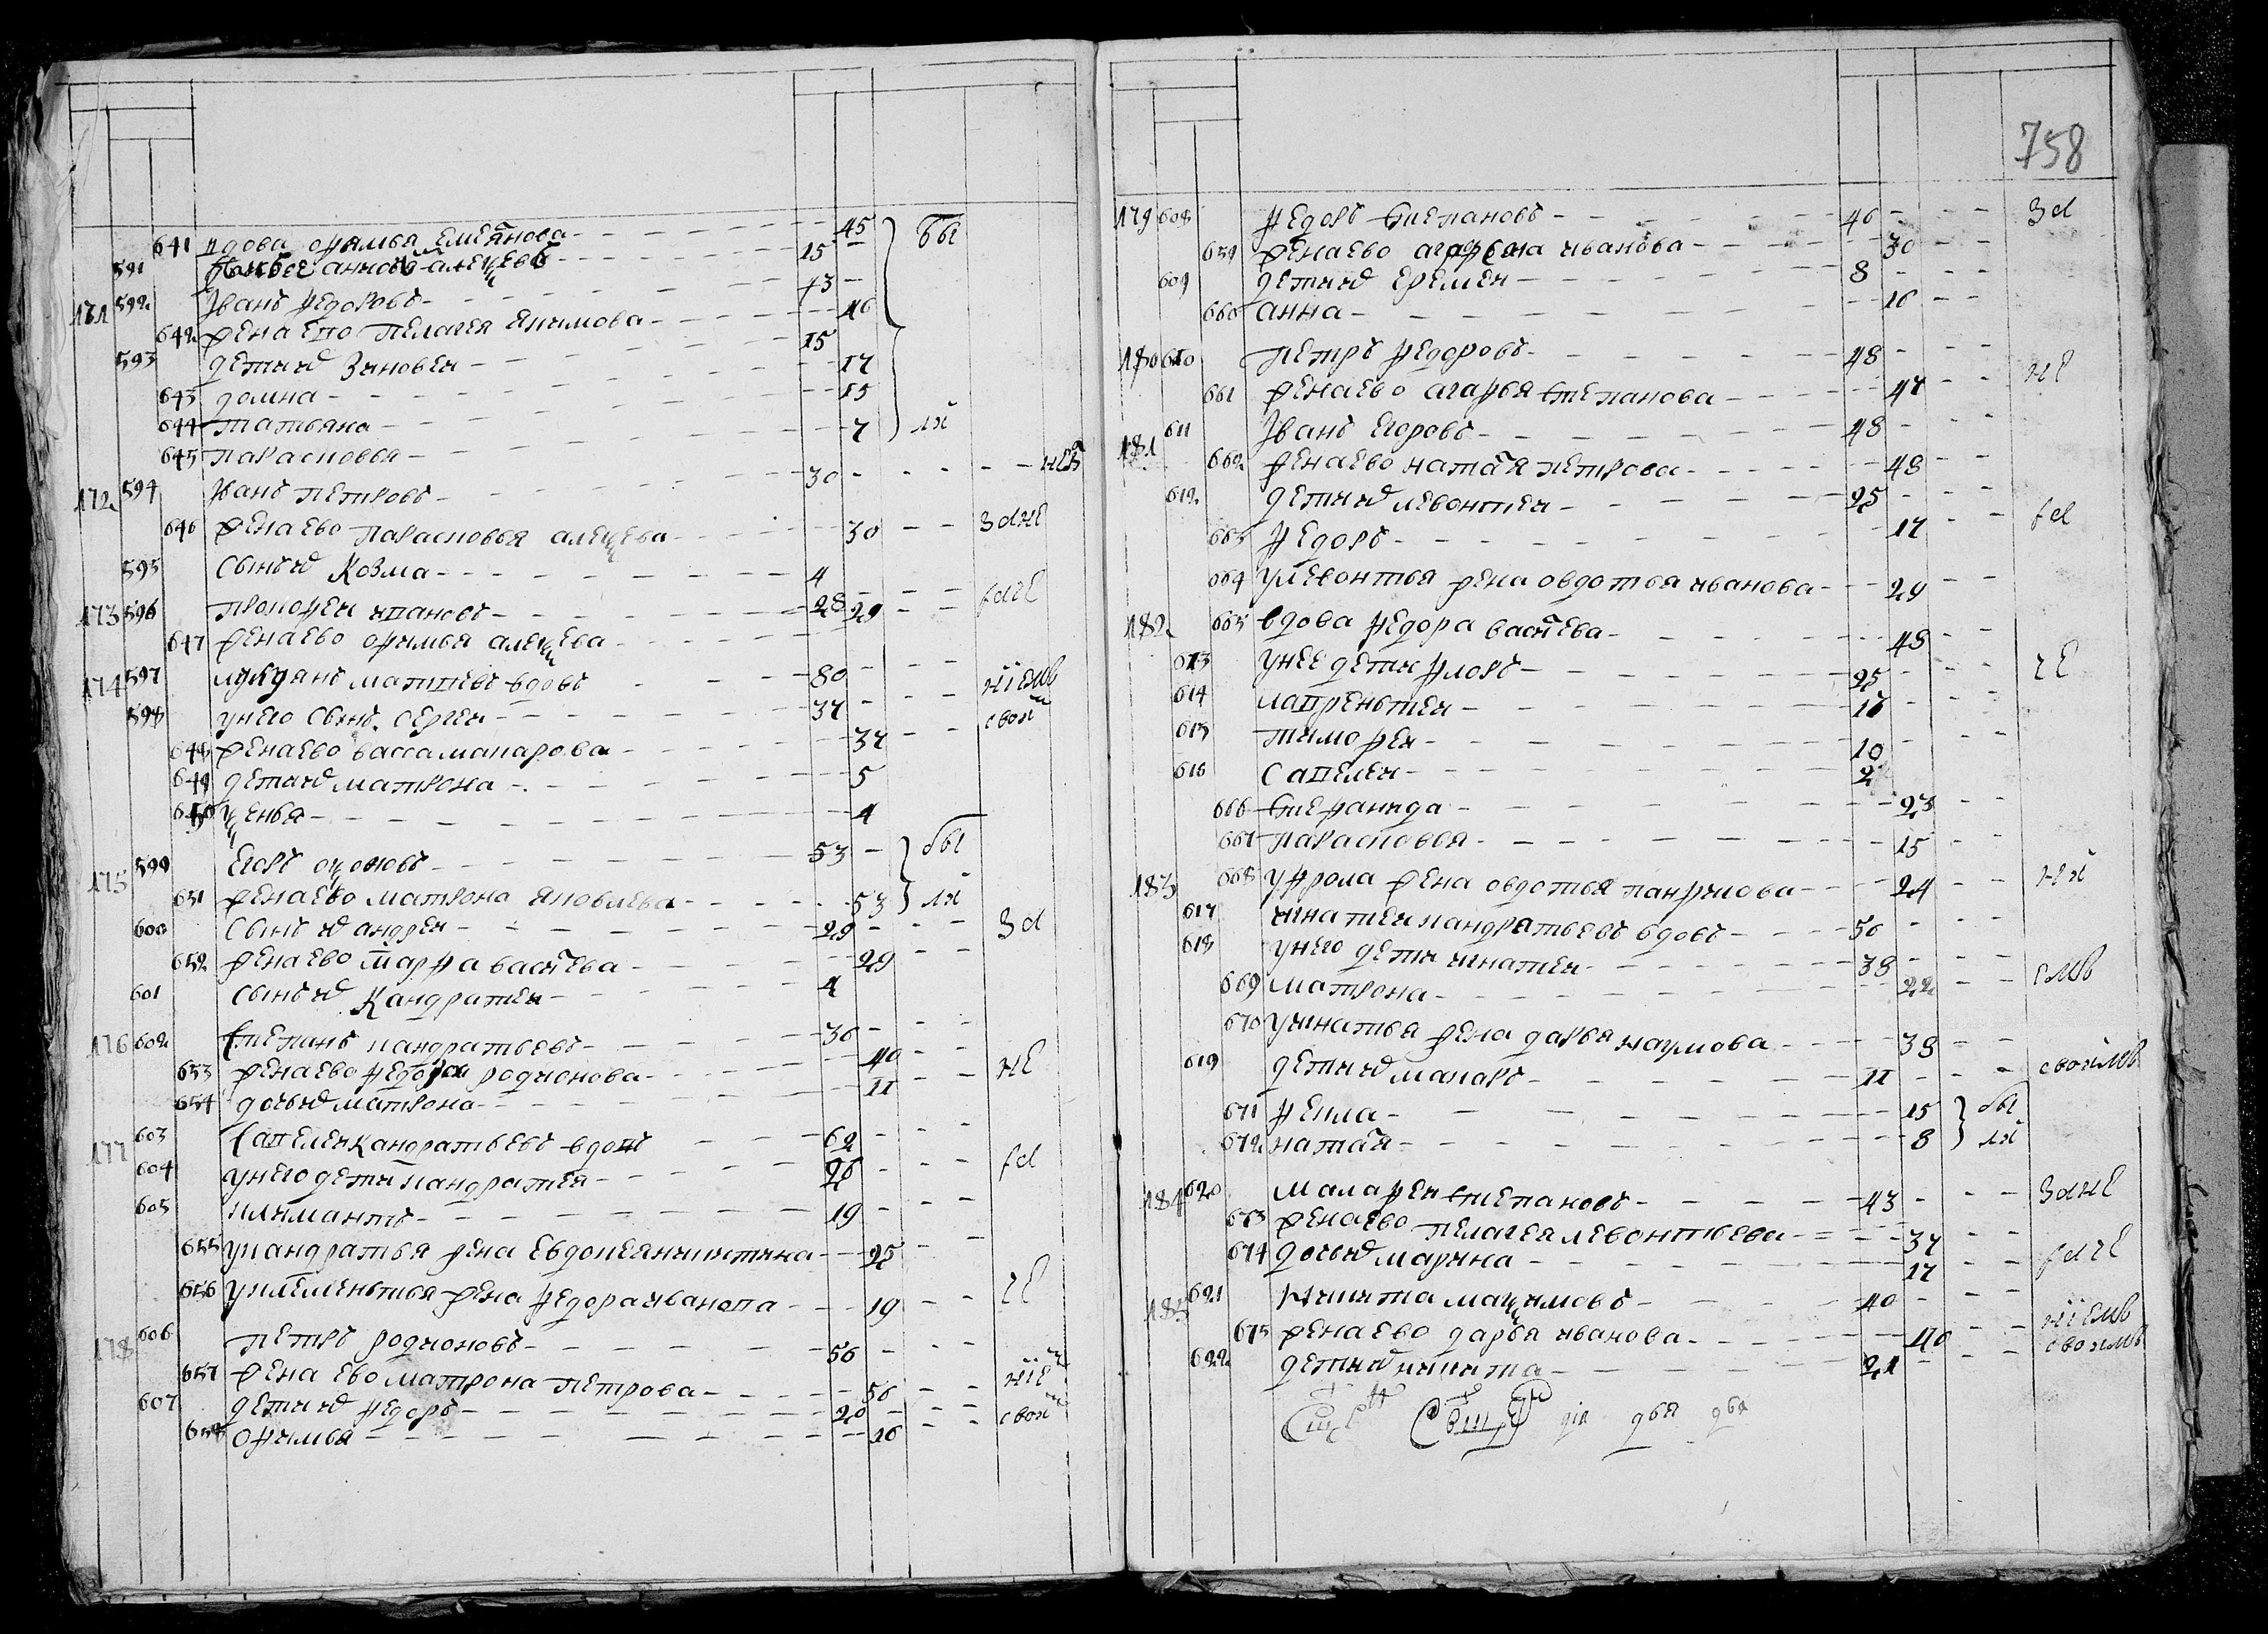 641 вдова офимья Емелянова 45 бы
591 15
171 592 Иванъ Федоровъ 43
642 жена Ево Пелагея Якимова 46
593 дети их Зиновеи 15
643 домна 17
644 татьяна 15
645 парасковья 7 ли
172 594 Иванъ петровъ 30
646 жена Ево парасковья алексева 30
595 сынъ их Козма 4
173 596 прокофеи ивановъ 28
647 жена Ево офимья алексева 29
174 597 лукьянъ матвеевъ вдовъ 80
598 у него сынъ сергеи 37
648 жена Ево васса макарова 37
649 дети их матрона 5
650 ксенья 4
175 599 Егоръ 53 бы
651 жена Ево матрона Яковлева 53 ли
600 сынъ их андреи 29
652 жена Ево марфа василева 29
601 сынъ их Кандратеи 4
176 602 степанъ кандратьевъ 36
653 жена Ево Федора родионова 40
654 дочь их матрона 11
177 603 савелеи кандратьевъ вдовъ 62
604 у него дети кандратеи 26
605 климантъ 19
655 у кандратья жена Евдокея никитина 25
656 у клеменьтья жена Федора иванова 19
178 606 петръ родионовъ 56
657 жена Ево матрона петрова 56
607 дети их Федоръ 20
658 офимья 16
758
179 608 Федоръ степановъ 46
659 жена Ево аграфена иванова 30
609 дети их Еремеи 8
660 анна 16
180 610 петръ Федоровъ 48
661 жена Ево агафья степанова 47
181 611 Иванъ Егоровъ 48
662 жена Ево наталя петрова 48
612 дети их левонтеи 25
663 Федоръ 17
664 у левонтья жена овдотья иванова 29
182 665 вдова Федора василева 48
613 у нее дети флоръ 25
614 лаврентеи 16
615 тимофеи 10
616 савелеи 2
666 степанида 23
667 парасковья 15
183 668 у фрола жена овдотья панфилова 24
617 игнатеи кандратьевъ вдовъ 56
618 у него дети игнатеи 38
669 матрона 22
670 у игнатья жена дарья наумова 38
619 дети их макаръ 11
671 фекла 15 бы
672 наталя 8 ли
184 620 малафеи степановъ 43
673 жена Ево пелагея левонтьева 37
674 дочь их марина 17
185 621 Никита максимовъ 40
675 жена Ево дарья иванова 40
622 дети их никита 21